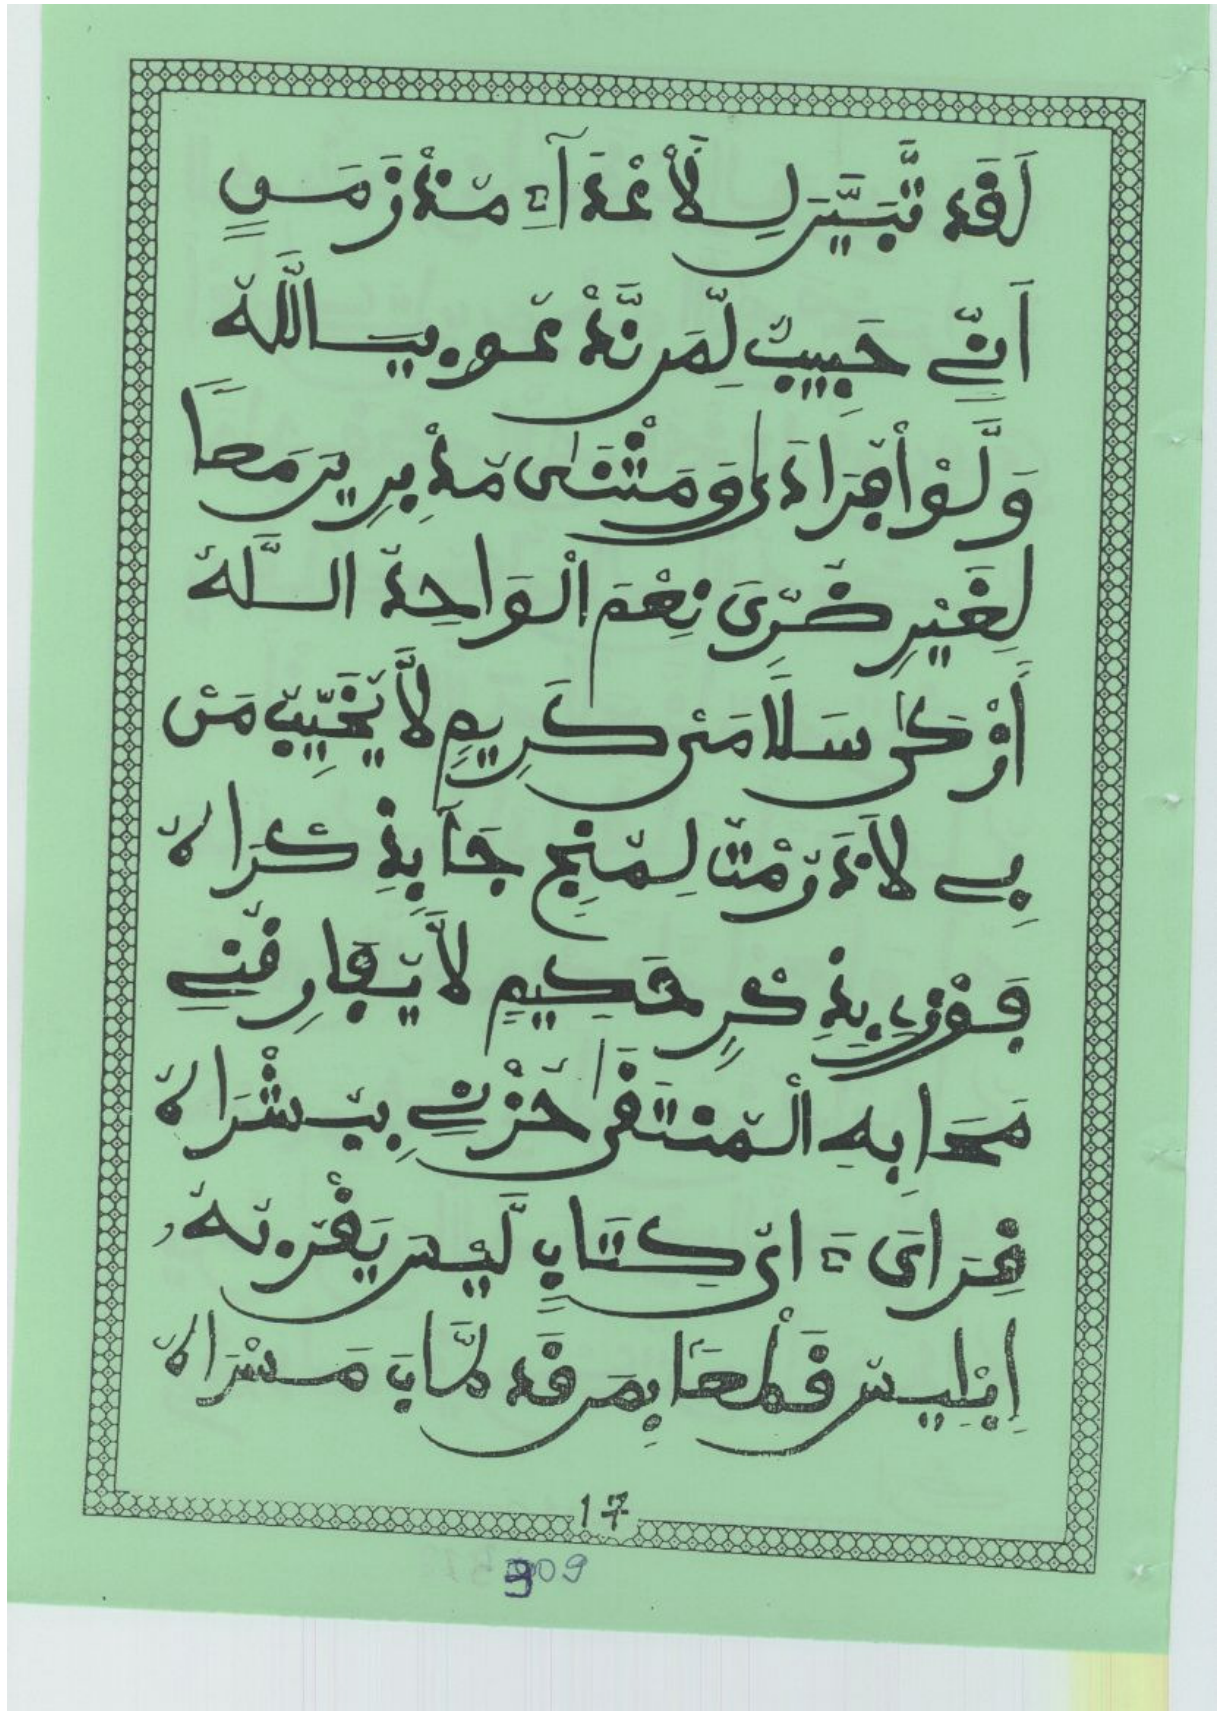 لَقَدْ تَبَيَّنَ لِلْأَعْدَآءِ مُنْذُ زَمَنٍ
أَنِّي حَبِيبٌ لِمَن نَّدْعُوهُ يَـاللَّهُ
وَلَوْ أَفِرَاءَى وَمَثْنَى مُذْ بِرِ يَن مَعًا
لِغَيْرِ ضُرِّىَ نِعْمَ الْوَاحِدُ اللَّهُ
أَوْ كَى سَلَامَى كَرِيمٍ لَّا يُخَيِّبُ مَنْ
بِي لَاذَ رُمْتُ لِمُنْجٍ جَآ بِذِكْرَاهُ
فَوْزِى بِذِكْرِ حَكِيمٍ لَّا يُفَارِقُنِي
مَحَا بِهِ الْمُنْتَقَى حُزْنِي بِبُشْرَاهُ
قِرَاىءَةُ اىِ كِتَابٍ لَّيْسَ يَقْرَبُهُ
إِبْلِيسُ قَلْعًا بِمَن قَدْ لَمَّابَ مَسْرَاهُ
17
909